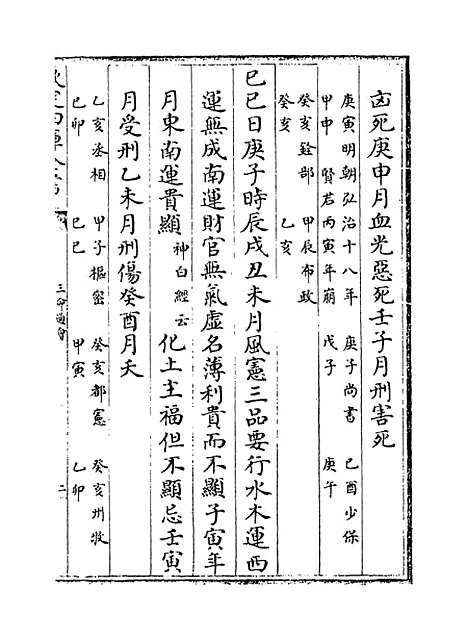 凶死庚申月血光惡死壬子月刑害死
庚寅明朝弘治十八年 庚子尚書 己酉少保
甲申 賢君丙寅年崩 戊子 庚午
癸亥銓部 甲辰布政
癸亥 乙亥
己巳日庚子時辰戌丑未月風憲三品要行水木運西
運無成南運財官無氣虛名薄利貴而不顯子寅年
月東南運貴顯
神白經云
化土主福但不顯忌壬寅
月受刑乙未月刑傷癸酉月夭
乙亥丞相 甲子樞密 癸亥都憲 癸亥州牧
己卯 己巳 甲寅 乙卯
三命通會
二